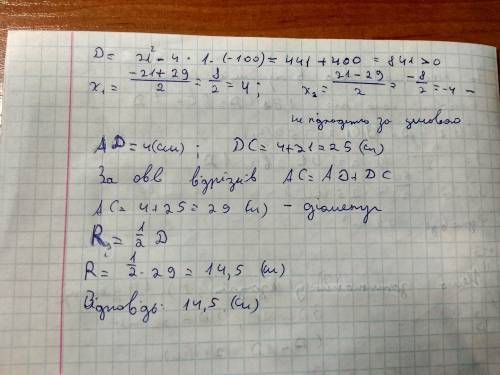 D = 21² - 4 · 1 · (-100) = 441 + 400 = 841 > 0
x₁ = (-21+29)/2 = 8/2 = 4; x₂ = (21-29)/2 = -8/2 = -4 -
не підходить за умовою
AD = 4 (см); DC = 4+21 = 25 (см)
За овв відрізків AC = AD + DC
AC = 4 + 25 = 29 (см) - діаметр
R = 1/2 D
R = 1/2 · 29 = 14,5 (см)
Відповідь: 14,5 (см)